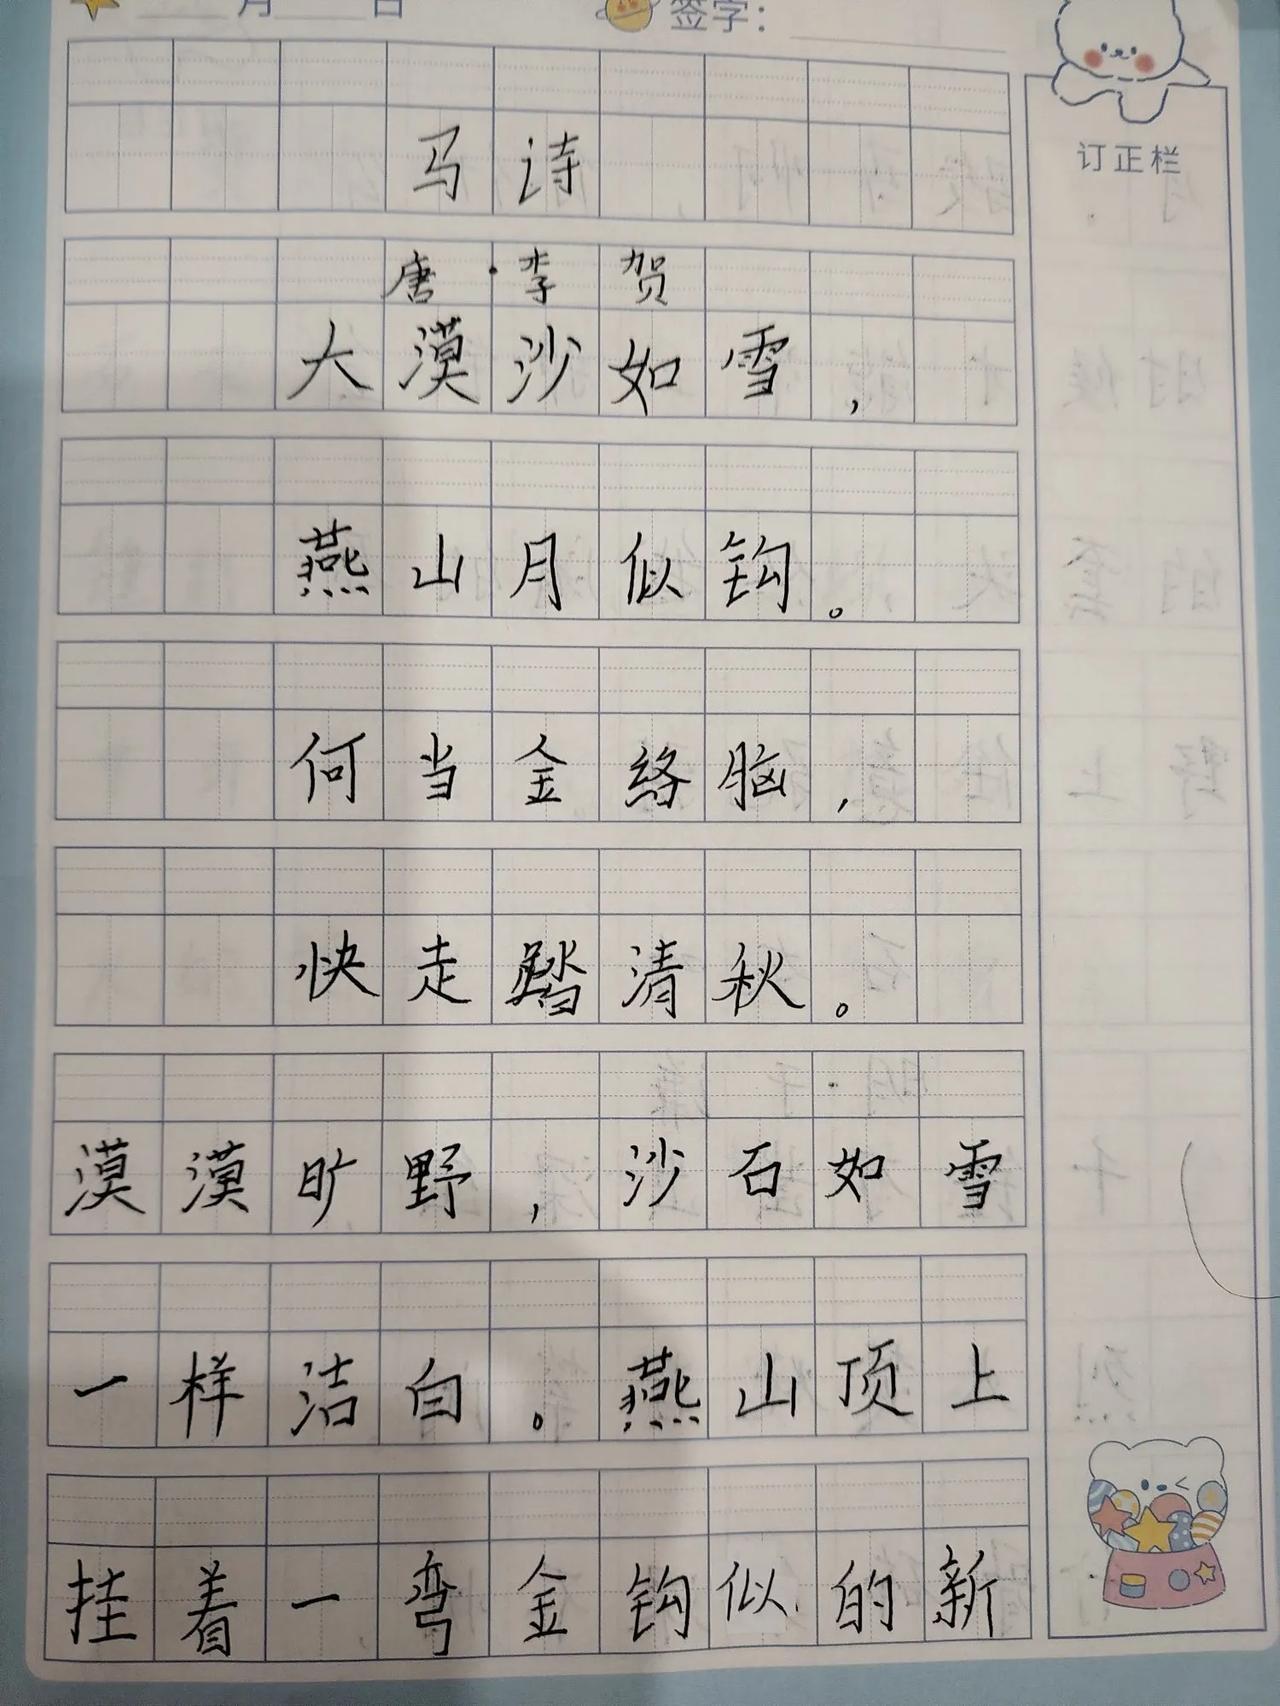 月 日 签字：
订正栏
马诗
唐·李贺
大漠沙如雪，
燕山月似钩。
何当金络脑，
快走踏清秋。
漠漠旷野，沙石如雪
一样洁白。燕山顶上
挂着一弯金钩似的新